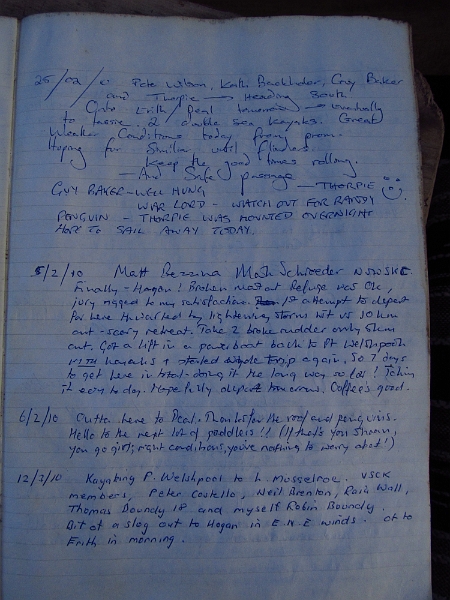 25/02/ Pete Wilson, Kathi Guy Baker
and Thorpie → Heading South
Onto Erith / Deal tomorrow → eventually
to Tassie 2 double sea kayaks. Great
Weather Conditions today from prom.
Hoping for Similar until Flinders.
Keep the good times rolling.
And Safe passage — THORPIE
GUY BAKER - WELL HUNG
WAR LORD - WATCH OUT FOR RANDY
PENGUIN - THORPIE WAS MOUNTED OVERNIGHT
HOPE TO SAIL AWAY TODAY.
5/2/10 Matt Bezzina Schroeder NSWSKC
Finally - Hogan! Broken mast at Refuge was OK,
jury rigged to my satisfaction. 1st attempt to depart
for here thwarted by lightening storms hit us 10km
out - scary retreat. Take 2 broke rudder only 5km
out. Got a lift in a powerboat back to Pt Welshpool
WITH kayaks & started whole trip again. So 7 days
to get here in total - doing it the long way so far! Taking
it easy today. Hopefully depart tomorrow. Coffee's good.
6/2/10 Outta here to Deal. Thanks for the roof and penguins.
Hello to the next lot of paddlers!! (If that's you Shaan,
you go girl; right conditions, you've nothing to worry about!)
12/2/10 Kayaking P. Welshpool to L. Musselroe. VSCK
members, Peter Costello, Neil Brenton, Wall,
Thomas Boundy 18 and myself Robin Boundy.
Bit of a slog out to Hogan in E.N.E winds. to
Erith in morning.